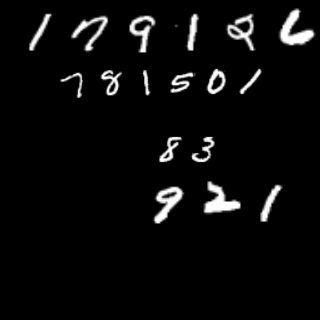 179126
781501
83
921